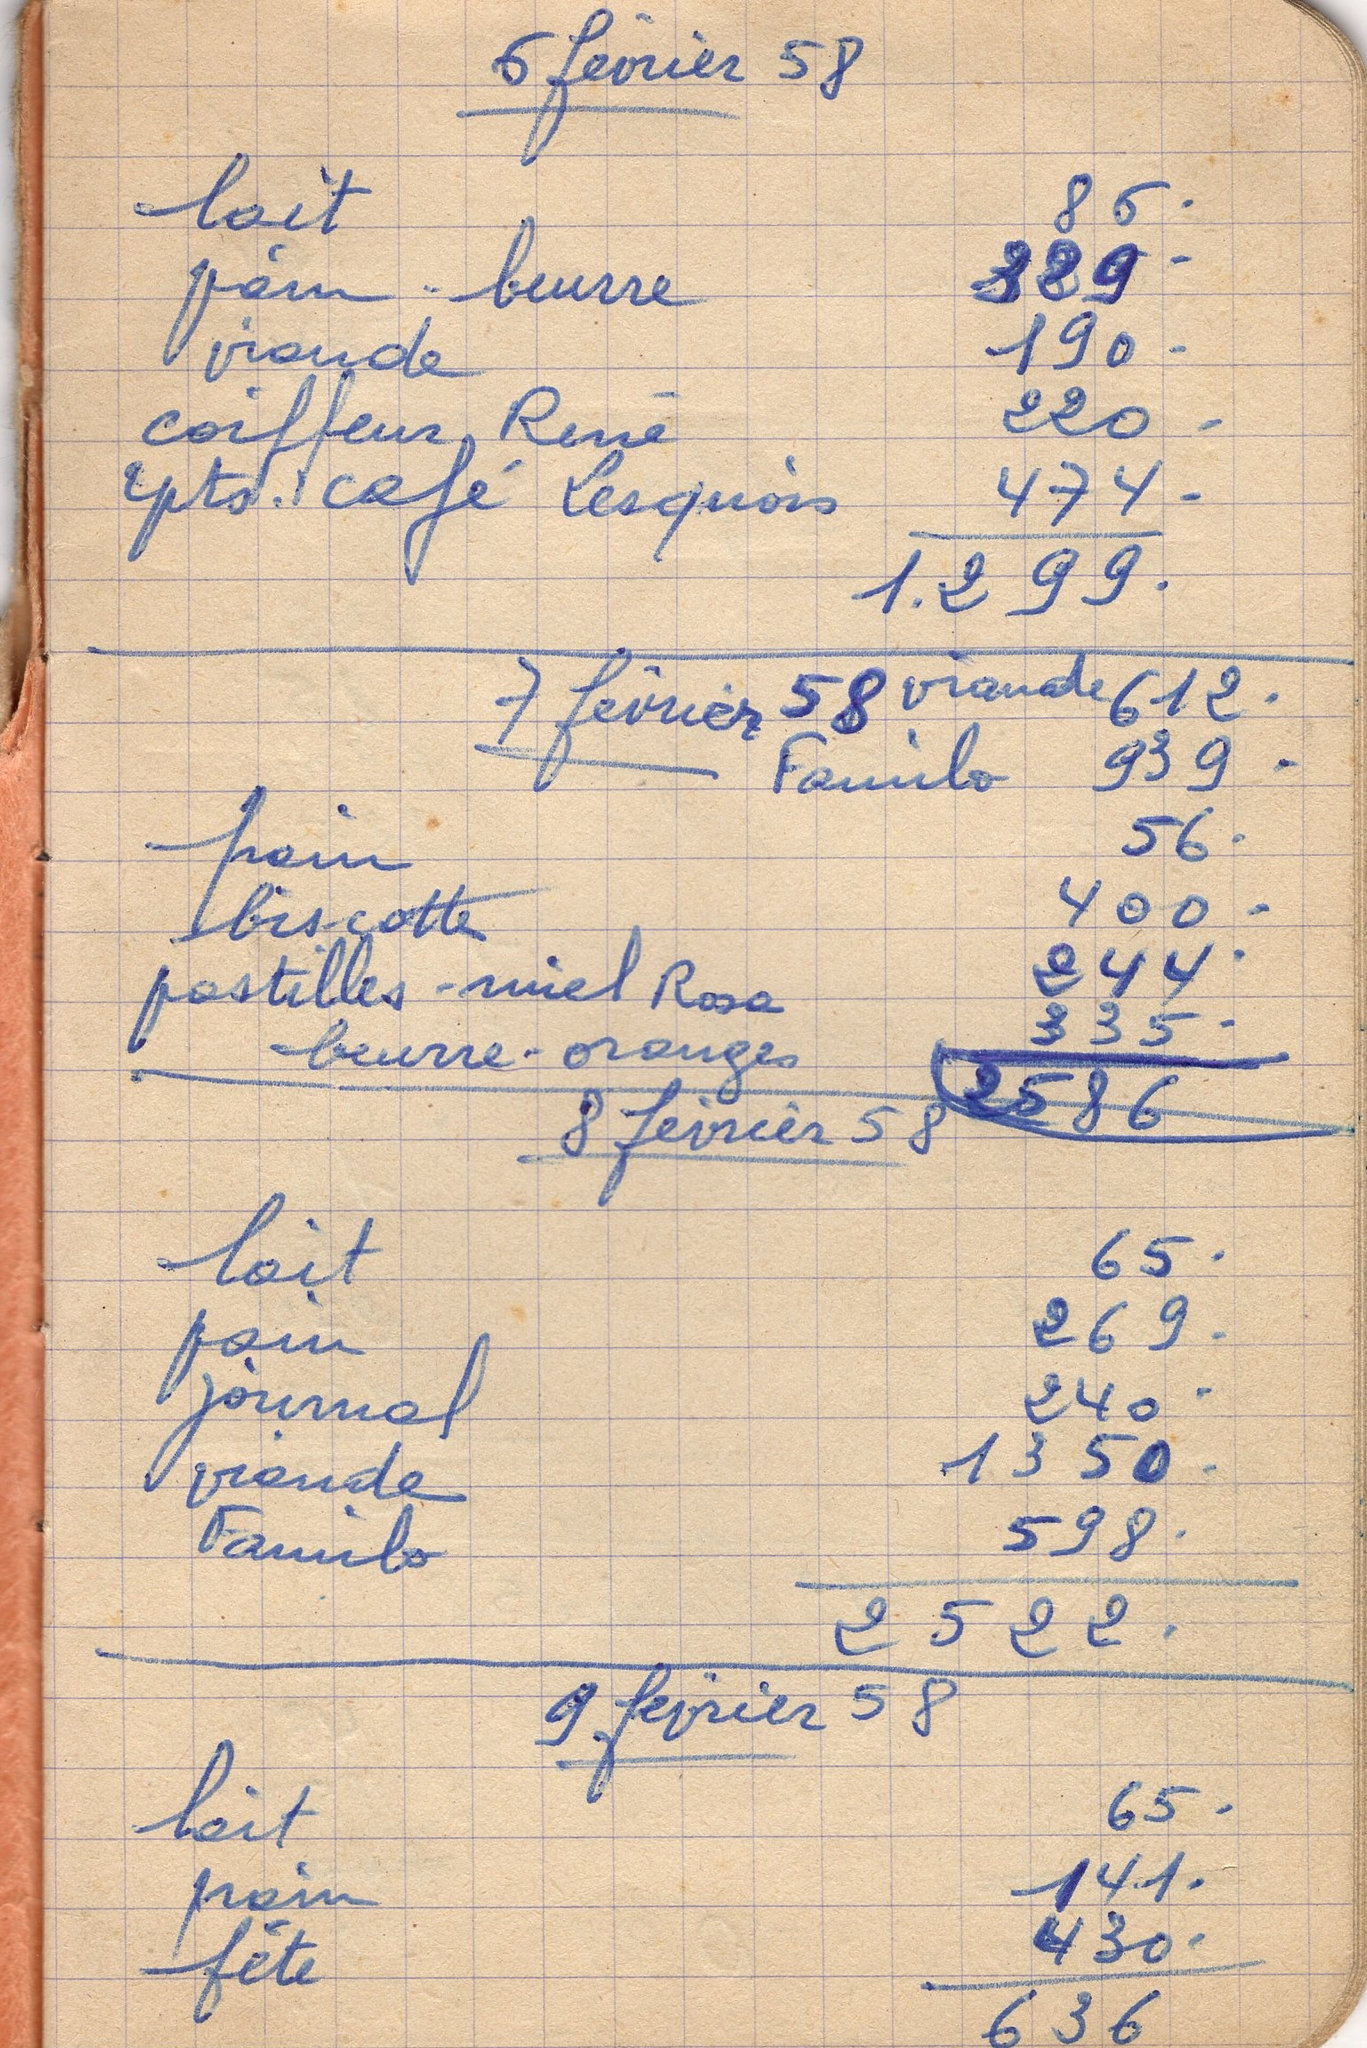 6 février 58
lait 86.
pain - beurre 329 -
viande 190 -
coiffeur René 220 -
2 pts. café Lesquois 474 -
1.299.
7 février 58 viande 612.
Familo 939 -
pain 56.
biscotte 400 -
pastilles - miel Rosa 244.
beurre - oranges 335 -
2586
8 février 58
lait 65.
pain 269.
journal 240 -
viande 1350.
Familo 598.
2522.
9 février 58
lait 65.
pain 141.
fête 430.
636